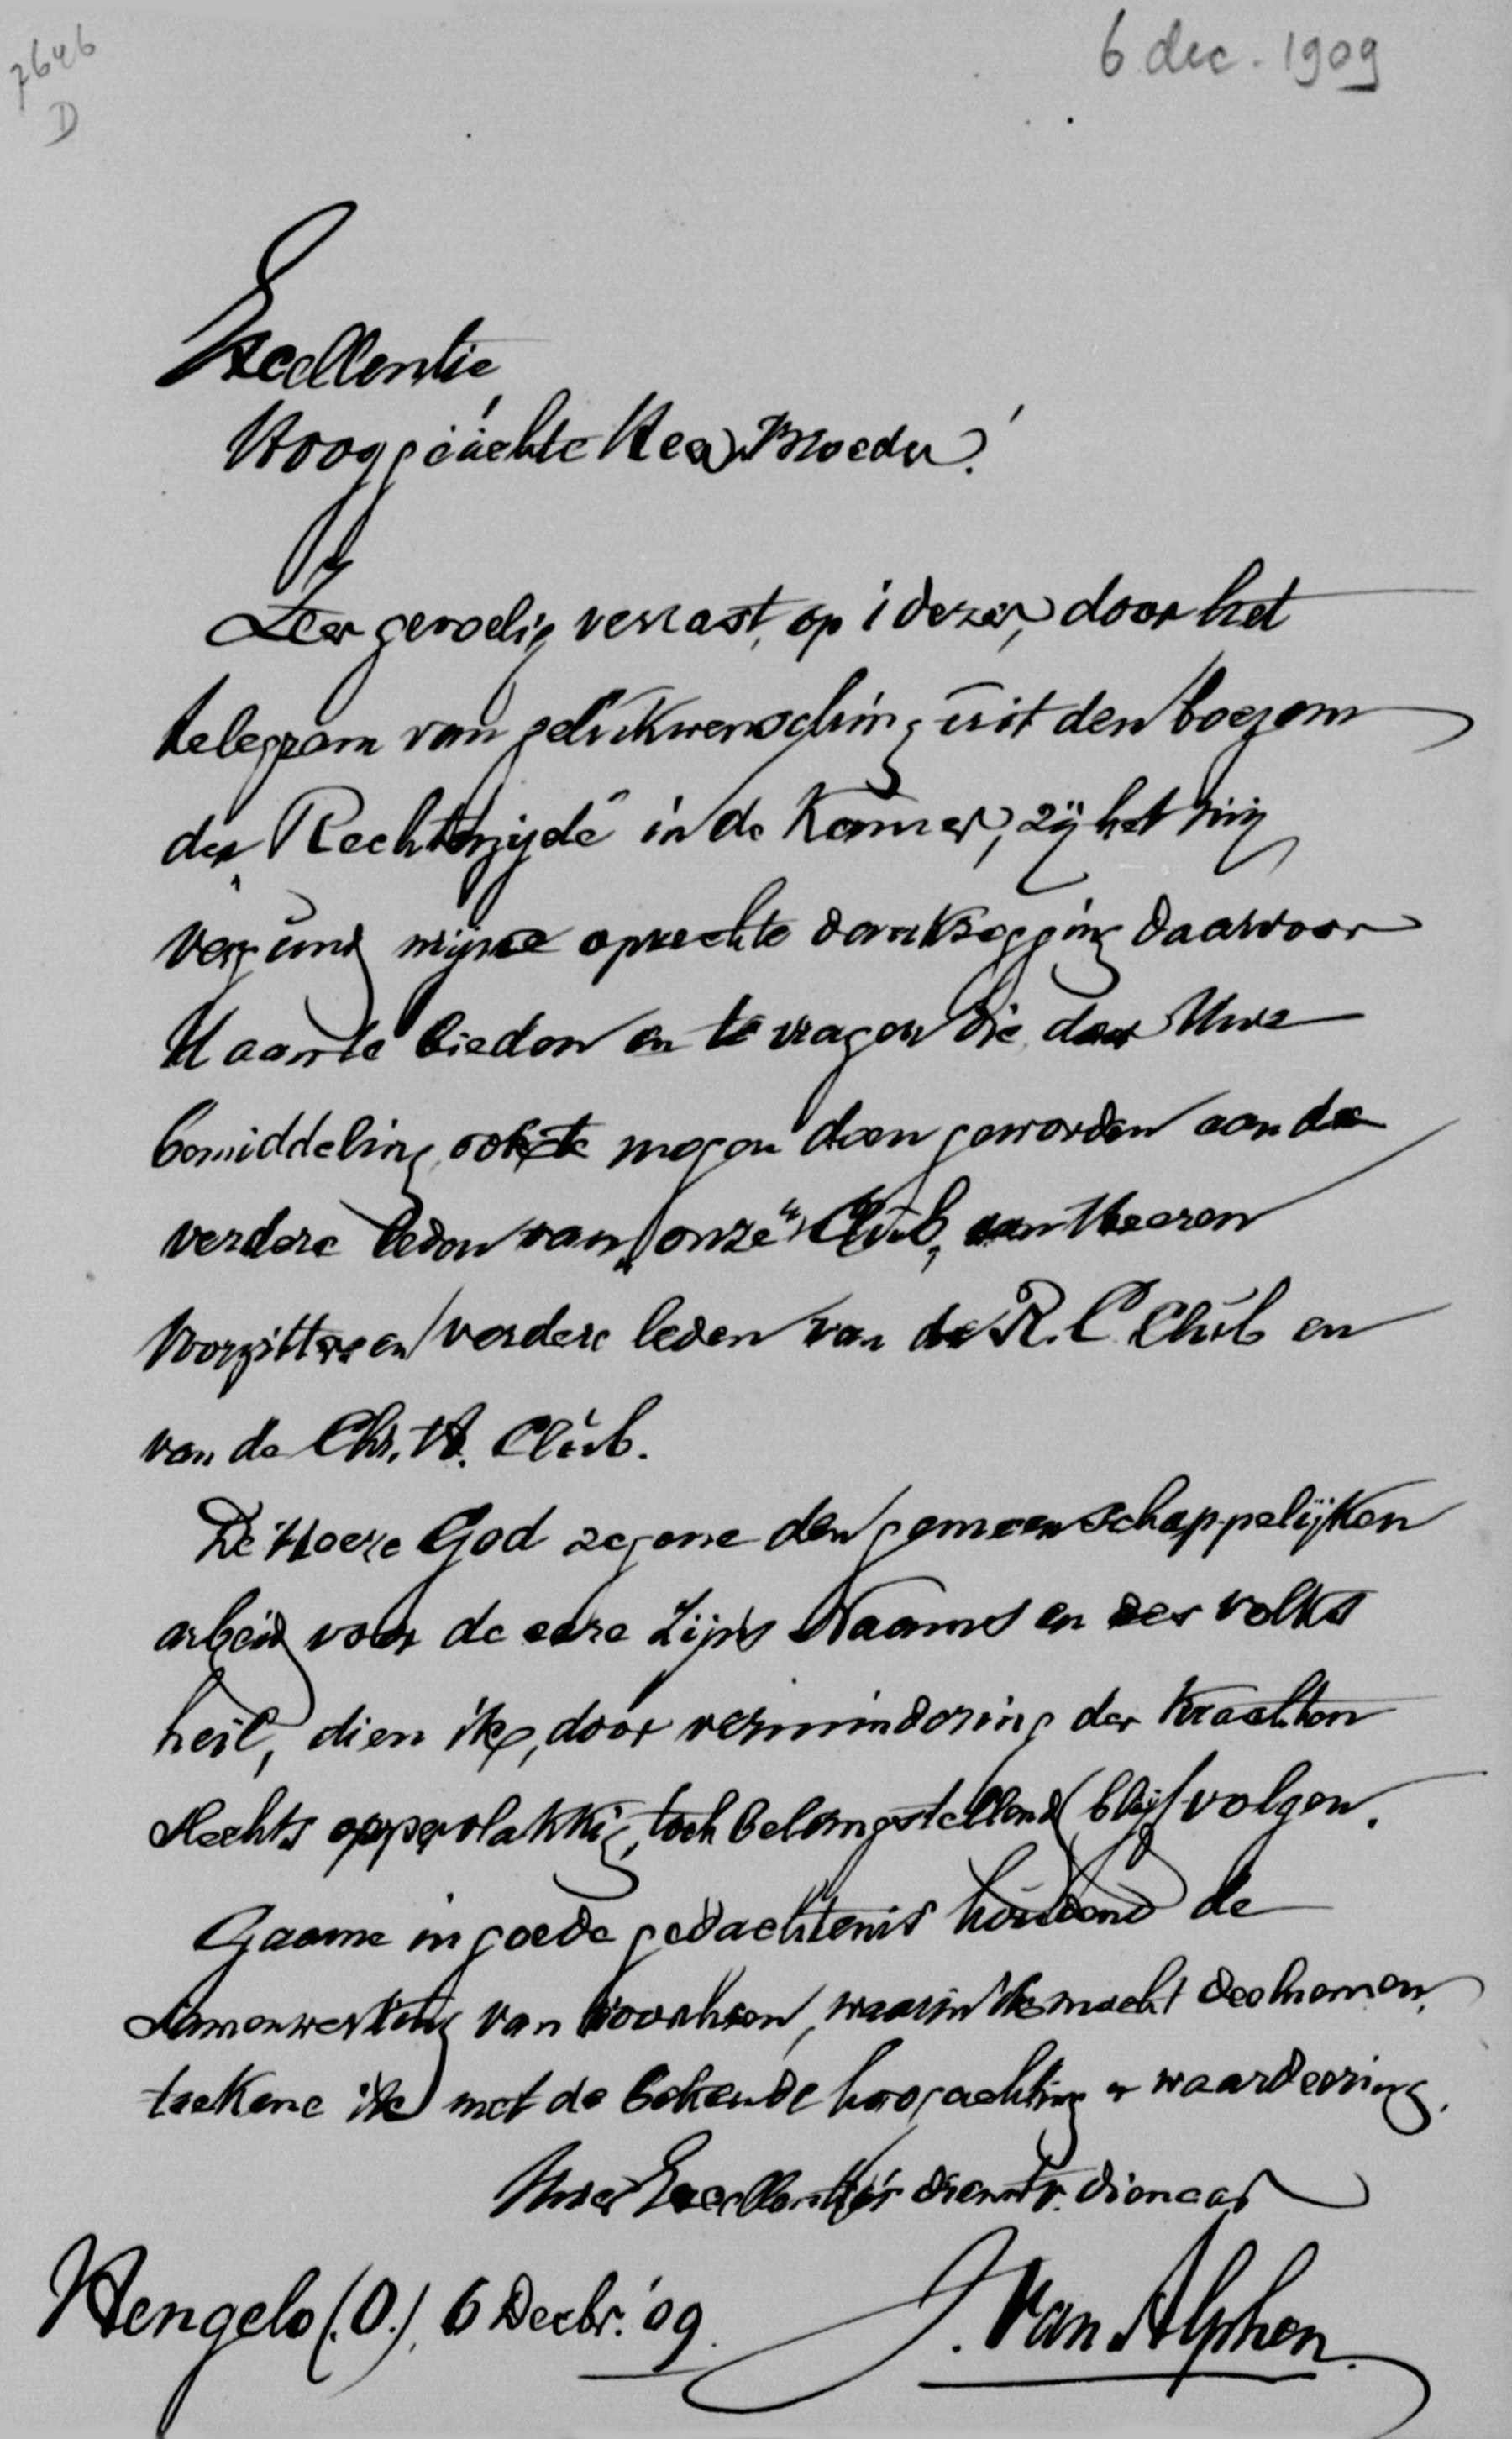 7646
D
6 dec. 1909
Excellentie,
Hooggeachte Heer Broeder!
Zeer gevoelig verrast, op 1 dezer, door het
telegram van gelukwensching uit den boezem
der "Rechterzijde" in de Kamer, zij het mij
vergund mijne oprechte dankzegging daarvoor
U aan te bieden en te vragen die door Uwe
bemiddeling, ook te mogen doen geworden aan de
verdere leden van "onze" Club, aan Heeren
Voorzitters en verdere leden van de R. C. Club en
van de Chr. H. Club.
De Heere God zegene den gemeenschappelijken
arbeid voor de eere Zijns Naams en des volks
heil, dien ik, door vermindering der krachten
slechts oppervlakkig, toch belangstellend blijf volgen.
Gaarne in goede gedachtenis houdend de
samenwerking van voorheen, waarin ik mocht deelnemen,
teekene ik met de bekende hoogachting en waardeering.
Uwer Excellentie's dienstv. dienaar
Hengelo (O.), 6 Decbr. '09.
J. van Alphen.